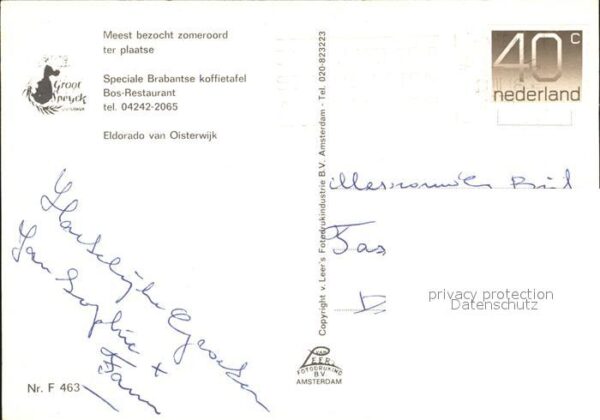 Meest bezocht zomeroord
ter plaatse
Groot
Speyck
OISTERWIJK
Speciale Brabantse koffietafel
Bos-Restaurant
tel. 04242-2065
Eldorado van Oisterwijk
Hartelijke Groeten
Jan Sophie +
Nr. F 463
Copyright v. Leer's Fotodrukindustrie B.V. Amsterdam - Tel. 020-823223
VAN
LEER'S
FOTODRUKIND
B.V.
AMSTERDAM
40 c
nederland
privacy protection
Datenschutz